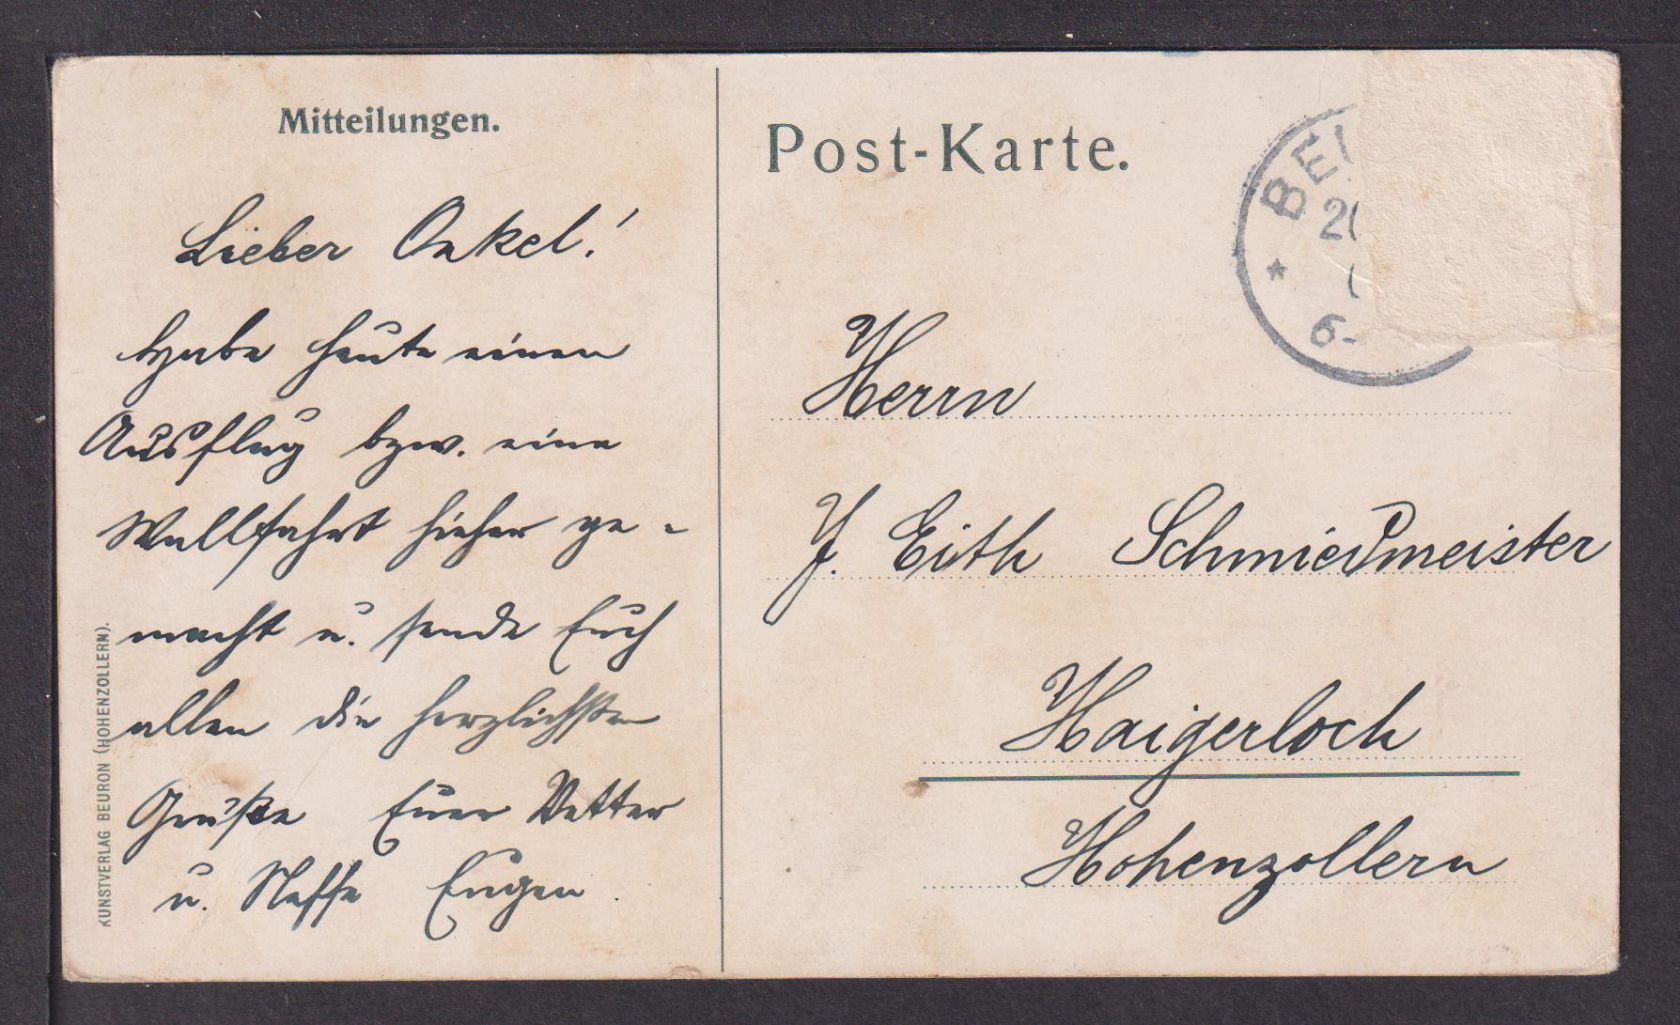 Mitteilungen.
Lieber Onkel!
Habe heute einen
Ausflug bzw. eine
Wallfahrt hieher ge-
macht u. sende Euch
allen die herzlichsten
Grüße Euer Vetter
u. Neffe Eugen
KUNSTVERLAG BEURON (HOHENZOLLERN).
Post-Karte.
BEU
20
6-
Herrn
J. Eith Schmiedmeister
Haigerloch
Hohenzollern